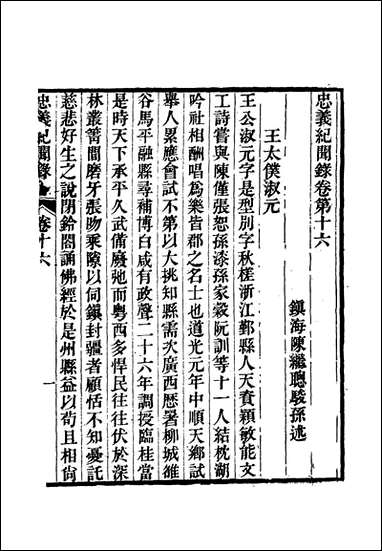 忠義紀聞錄卷第十六
鎮海陳繼聰駿孫述
王太僕淑元
王公淑元字是型別字秋槎浙江鄞縣人天資穎敏能文
工詩嘗與陳僅張恕孫漆孫家穀阮訓等十一人結枕湖
吟社相酬唱爲樂皆郡之名士也道光元年中順天鄉試
舉人累應會試不第以大挑知縣需次廣西歷署柳城雒
谷馬平融縣尋補博白咸有政聲二十六年調授臨桂當
是時天下承平久武備廢弛而粵西多悍民往往伏於深
林叢箐間磨牙張吻乘隙以伺鎮封疆者顧恬不知憂託
慈悲好生之說閉鈴閣誦佛經於是州縣益以苟且相尙
忠義紀聞錄 卷十六
一